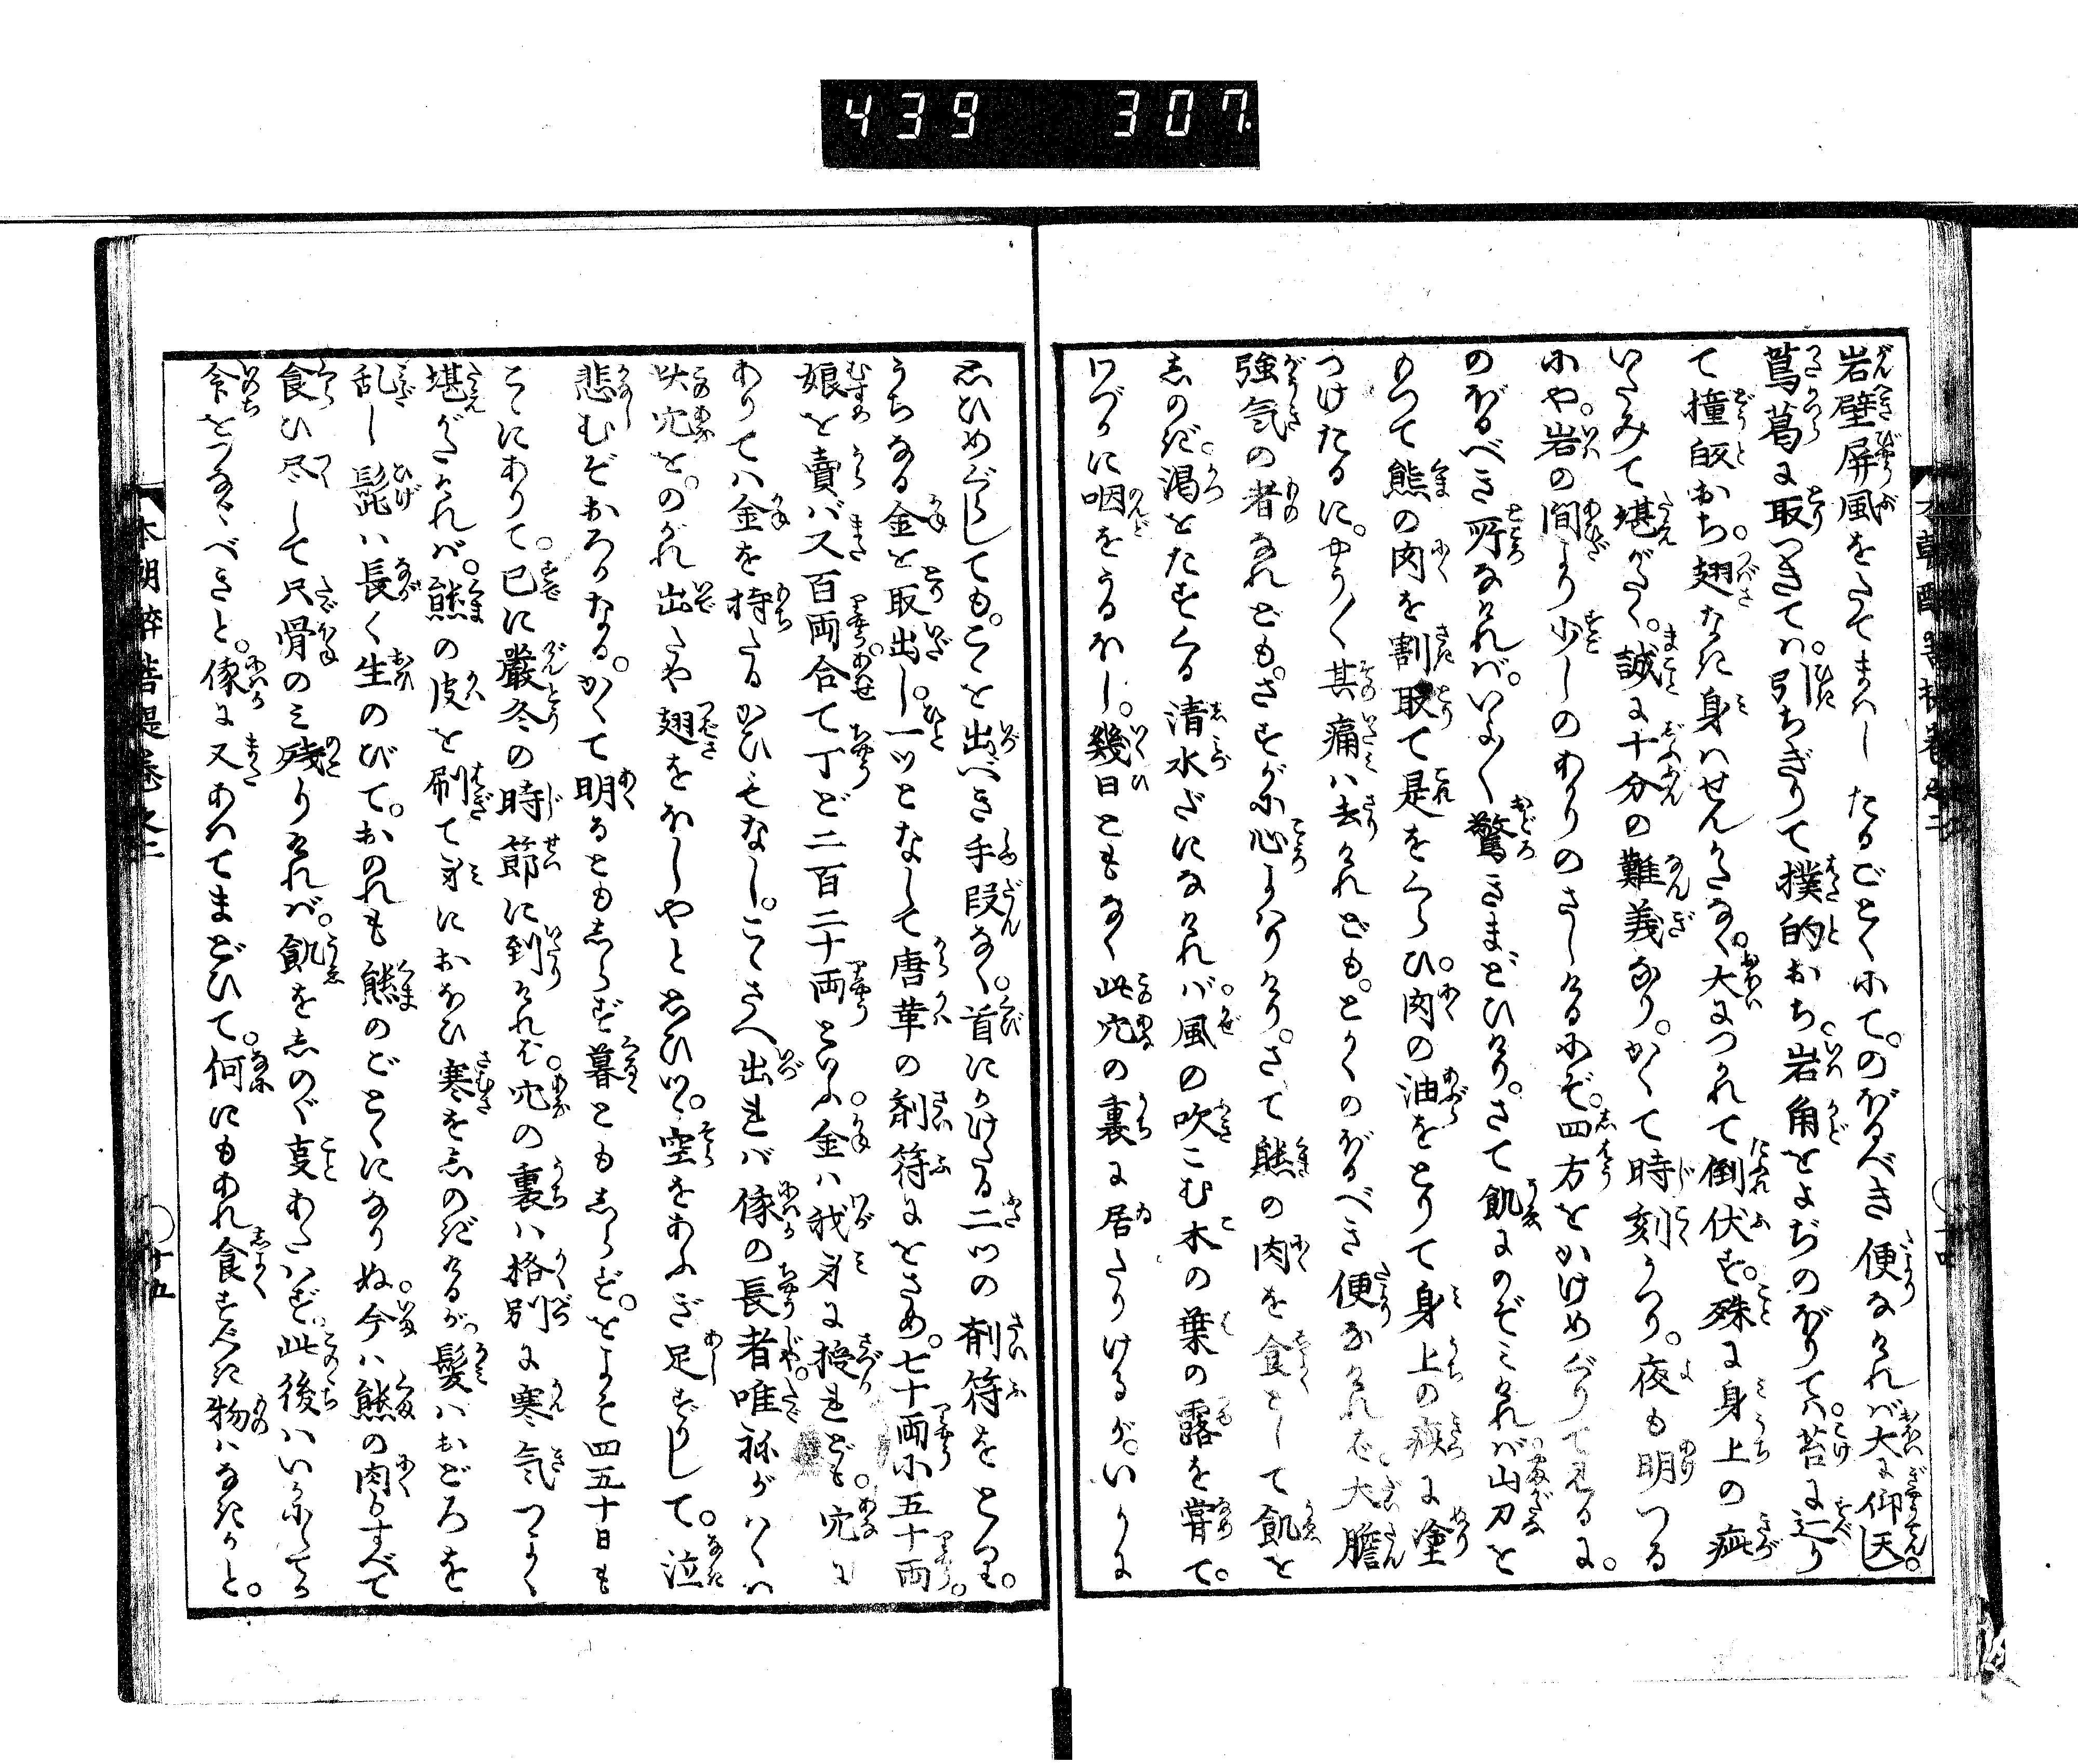 439 307
岩壁屏風をたてまはしたるごとくにて。のぼるべき便なければ大に仰天し。
蔦葛に取つきては。引ちぎりて撲的おち。岩角をよぢのぼりては。苔に辷り
て撞的おち。翅なき身はせんかたなく。大につかれて倒伏す。殊に身上の疵
いたみて堪がたく。誠に十分の難義なり。かくて時刻うつり。夜も明つる
にや。岩の間より少しのあかりのさしけるにぞ。四方をかけめぐりて見るに。
のぼるべき所なければ。いよ〱驚きまどひけり。さて飢にのぞみければ山刀を
もつて熊の肉を割取て是をくらひ。肉の油をとりて身上の疵に塗
つけたるに。やう〱其痛は去けれども。とかくのぼるべき便なければ。大膽
強気の者なれども。さすがに心よわりけり。さて熊の肉を食として飢を
しのぎ。渇をたすくる清水だになければ。風の吹こむ木の葉の露を嘗て。
わづかに咽をうるほし。幾日ともなく此穴の裏に居たりけるが。いかに
思ひめぐらしても。こゝを出べき手段なく。首にかけたる二ツの財符をとり。
うちなる金を取出し。一ツとなして唐革の財符にをさめ。七十両に五十両
娘を賣バ又百両合て丁ど二百二十両といふ金ハ我身に授れども。穴に
ありてハ金を持たるかひもなし。こゝさへ出れバ俄の長者唯祢がハくハ
此穴を。のがれ出たや翅をほしやと思ひツ。空をあふぎ足ずりして。泣
悲むぞおろかなる。かくて明るともしらず暮ともしらず。をよそ四五十日も
こゝにありて。已に嚴冬の時節に到りければ。穴の裏ハ格別に寒気つよく
堪がたければ。熊の皮を剥て身におほひ寒をしのぎけるが。髪ハおどろを
乱し髭ハ長く生のびて。おのれも熊のごとくになりぬ。今ハ熊の肉もすべて
食ひ尽して只骨のミ残りければ。飢をしのぐ事あたハず。此後ハいかにしてか
命をつなぐべきと。俄に又あハてまどひて。何にもあれ食すべき物ハなきかと。
本朝酔菩提巻之二
十四
本朝酔菩提巻之二
十五